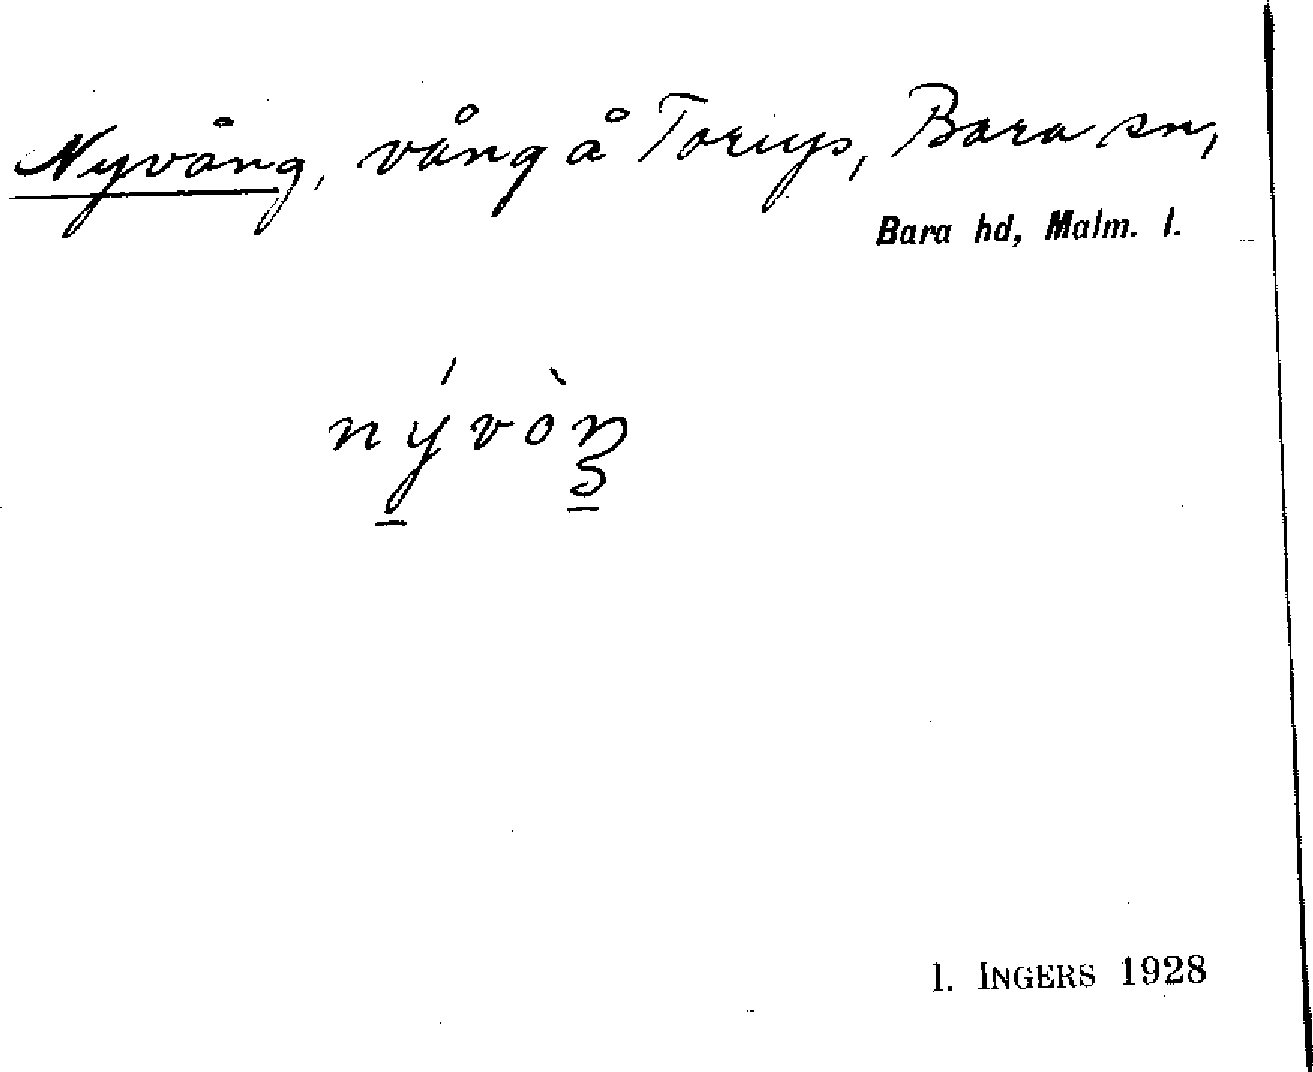 Nyvång, vång å Torup, Bara sn,
Bara hd, Malm. l.
nývòŋ
I. INGERS 1928